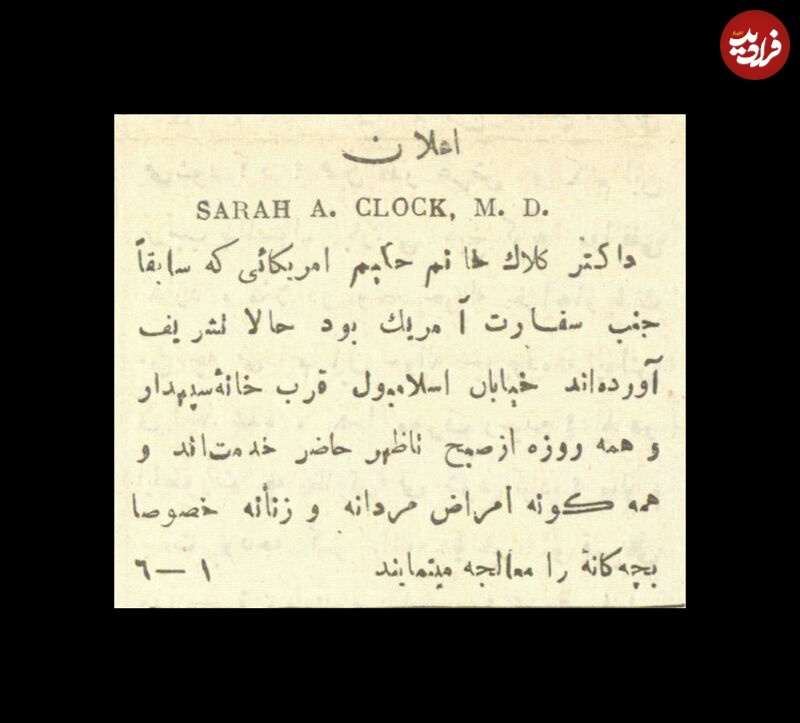 اخبار
فرادید
اعلان
SARAH A. CLOCK, M. D.
داکتر کلاك خانم حکیم امریکائی که سابقاً
جنب سفارت آمریك بود حالا تشریف
آورده‌اند خیابان اسلامبول قرب خانهٔ سپهدار
و همه روزه از صبح تا ظهر حاضر خدمت‌اند و
همه گونه امراض مردانه و زنانه خصوصا
بچه‌گانهٔ را معالجه مینمایند ۱—٦